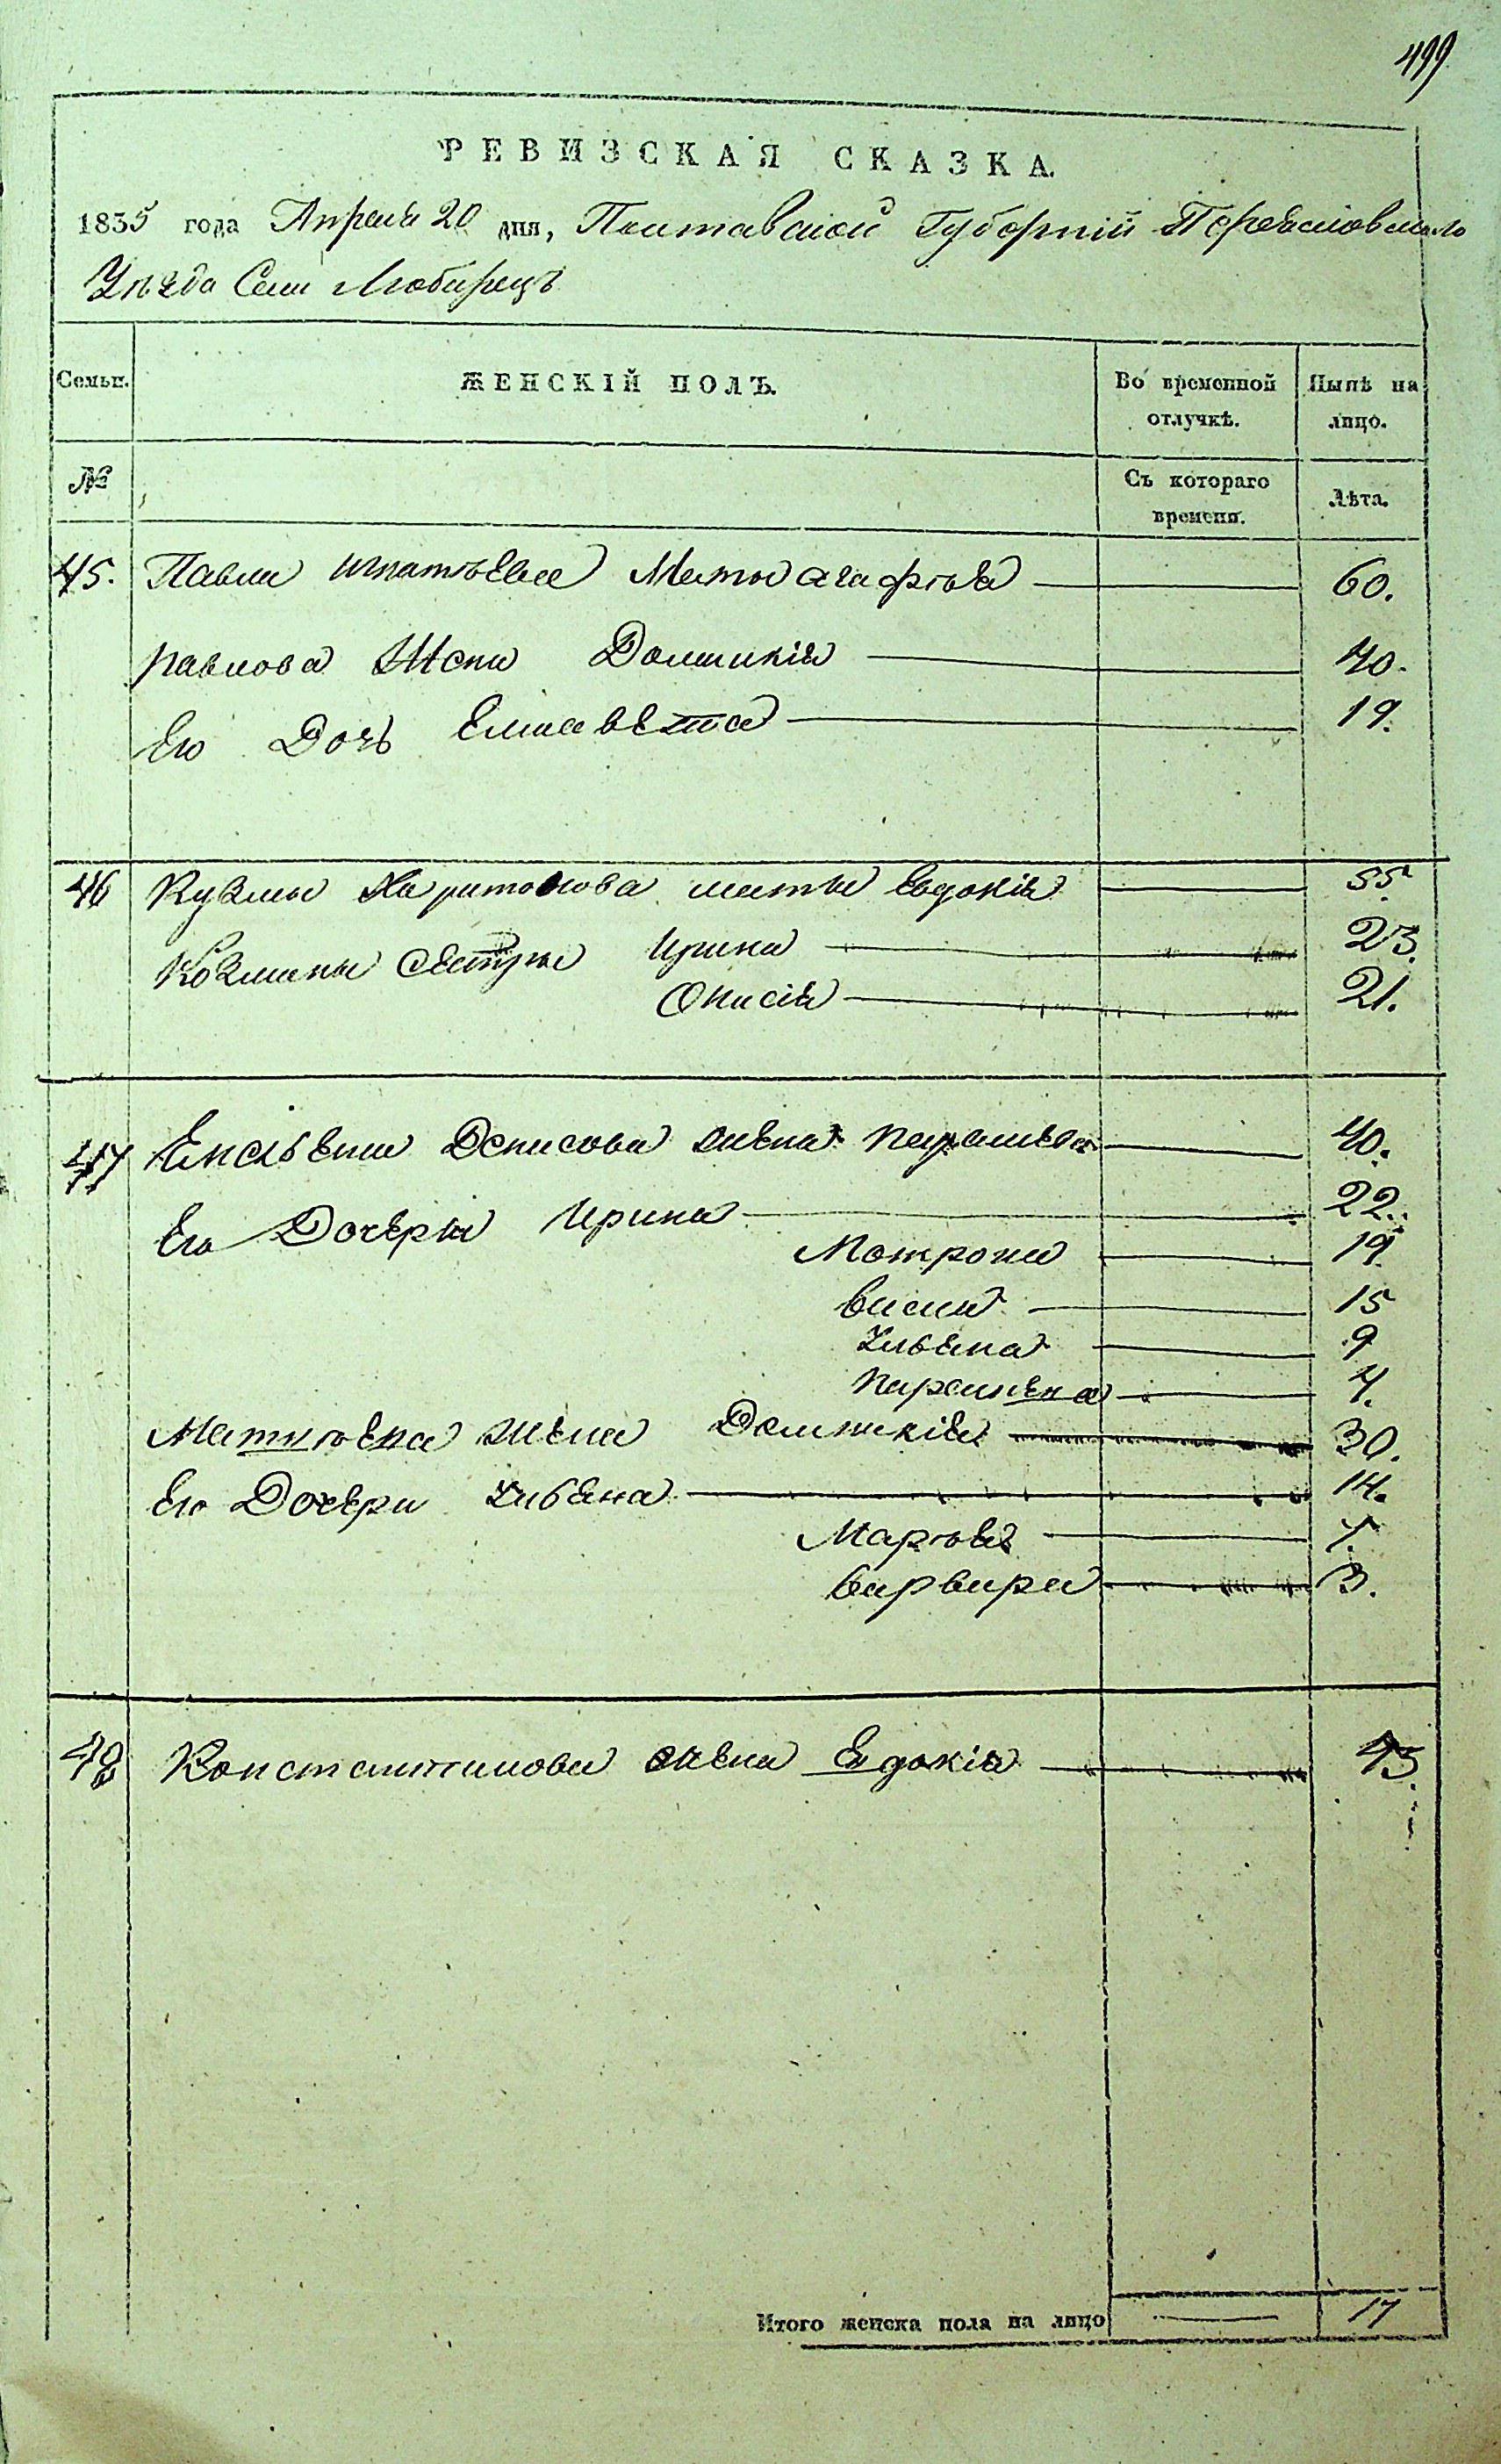 499
РЕВИЗСКАЯ СКАЗКА.
1835 года Апреля 20 дня, Полтавской Губерніи Переясловского
Уѣзда Села Любарецъ
Семьи. ЖЕНСКІЙ ПОЛЪ. Во временной отлучкѣ. Нынѣ на лицо.
№ Съ котораго времени. Лѣта.
45. Павла Игнатьева Мать Агафья 60.
Павлова Жена Домникія 40.
Его Дочь Елисавета 19.
46 Кузмы Харитонова мать Евдокія 55.
Козмины Сестры Ирина 23.
Онисія 21.
47 Денисова жена 40.
Его Дочеры Ирина 22.
Мотрона 19.
Васса 15
Ульяна 9
4.
жена Домникія 30.
Его Дочери Ульяна 14.
Марья 7.
Варвара 3.
48 Константинова жена Евдокія 45.
Итого женска пола на лицо 17